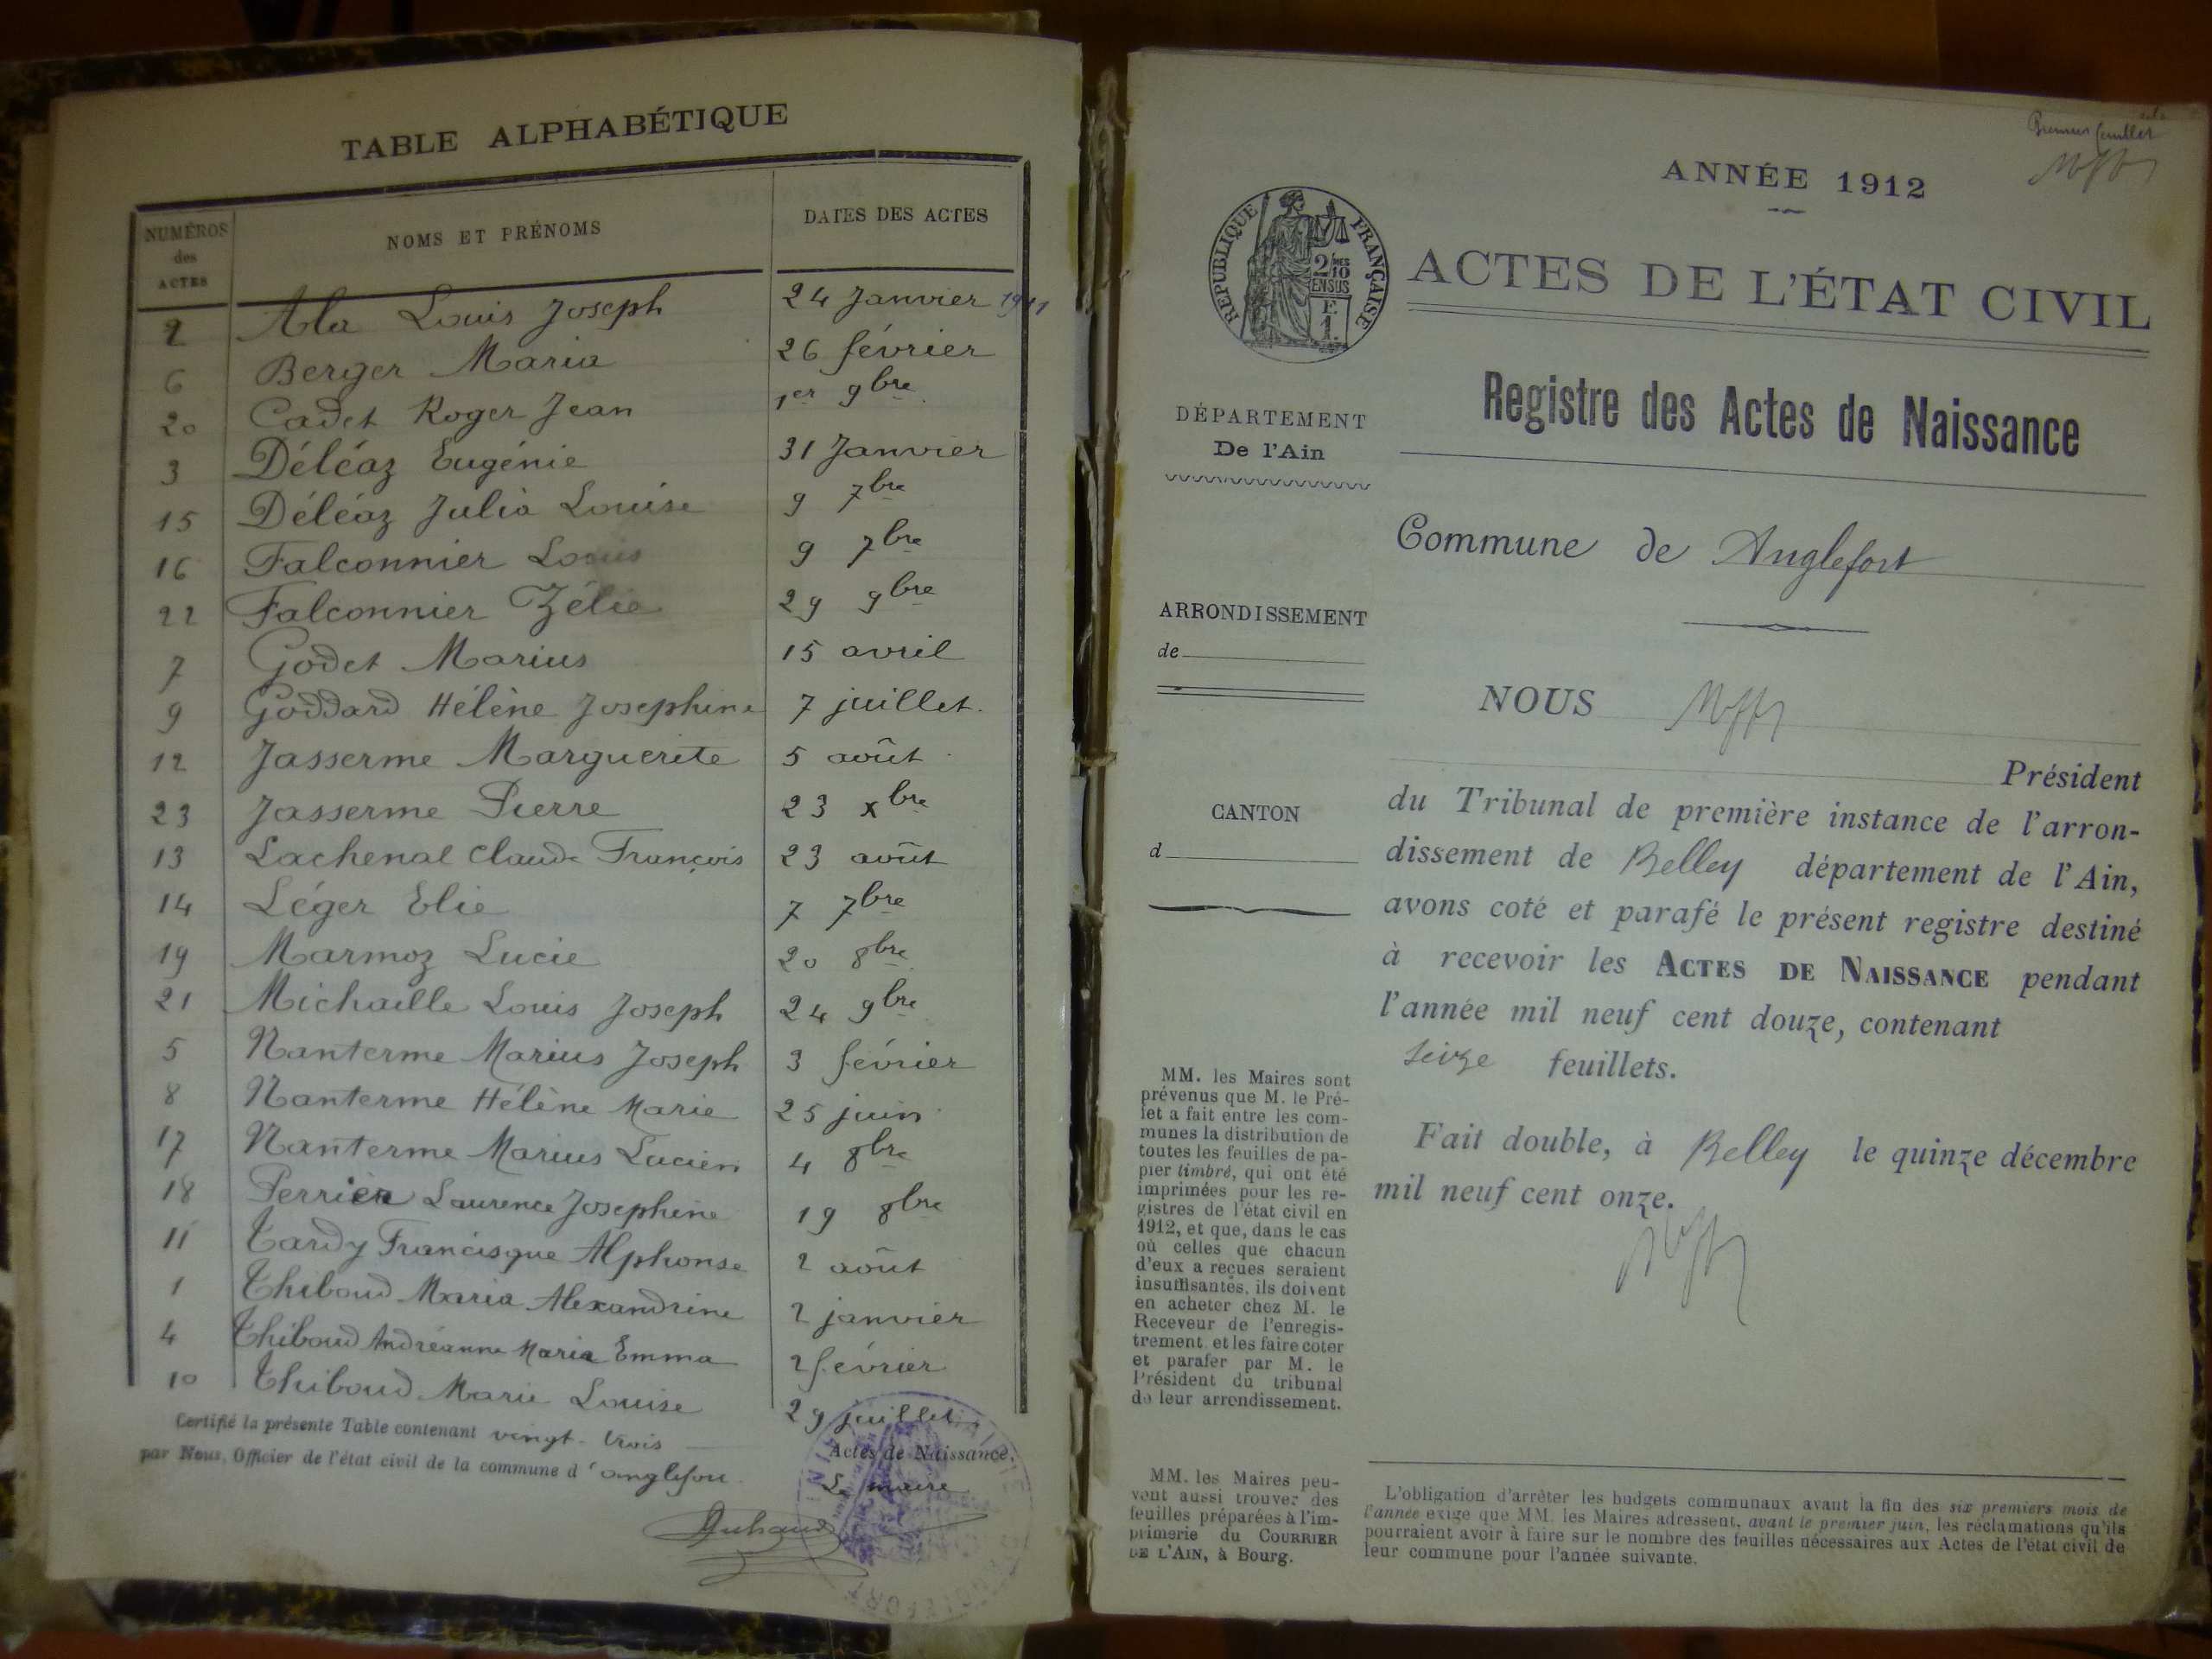 TABLE ALPHABÉTIQUE
NUMÉROS des ACTES NOMS ET PRÉNOMS DATES DES ACTES
2 Ala Louis Joseph 24 Janvier 1911
6 Berger Maria 26 février
20 Cadet Roger Jean 1er 9bre
3 Déléaz Eugénie 31 Janvier
15 Déléaz Julia Louise 9 7bre
16 Falconnier Louis 9 7bre
22 Falconnier Zélie 29 9bre
7 Godet Marius 15 avril
9 Goddard Hélène Josephine 7 juillet.
12 Jasserme Marguerite 5 août
23 Jasserme Pierre 23 xbre
13 Lachenal Claude François 23 août
14 Léger Elie 7 7bre
19 Marmoz Lucie 20 8bre
21 Michaille Louis Joseph 24 9bre
5 Nanterme Marius Joseph 3 février
8 Nanterme Hélène Marie 25 juin
17 Nanterme Marius Lucien 4 8bre
18 Perrier Laurence Josephine 19 8bre
11 Tardy Francisque Alphonse 2 août
1 Thiboud Maria Alexandrine 2 janvier
4 Thiboud Andréanne Maria Emma 2 février
10 Thiboud Marie Louise 29 juillet
Certifié la présente Table contenant vingt-trois Actes de Naissance.
par Nous, Officier de l'état civil de la commune d'anglefort
Le maire
Premier feuillet
ANNÉE 1912
RÉPUBLIQUE FRANÇAISE
2/10MES
EN SUS
F.
1.
ACTES DE L'ÉTAT CIVIL
Registre des Actes de Naissance
DÉPARTEMENT
De l'Ain
Commune de Anglefort
ARRONDISSEMENT
de
CANTON
d
NOUS
Président
du Tribunal de première instance de l'arron-
dissement de Belley département de l'Ain,
avons coté et parafé le présent registre destiné
à recevoir les ACTES DE NAISSANCE pendant
l'année mil neuf cent douze, contenant
seize feuillets.
Fait double, à Belley le quinze décembre
mil neuf cent onze.
MM. les Maires sont
prévenus que M. le Pré-
fet a fait entre les com-
munes la distribution de
toutes les feuilles de pa-
pier timbré, qui ont été
imprimées pour les re-
gistres de l'état civil en
1912, et que, dans le cas
où celles que chacun
d'eux a reçues seraient
insuffisantes, ils doivent
en acheter chez M. le
Receveur de l'enregis-
trement et les faire coter
et parafer par M. le
Président du tribunal
de leur arrondissement.
MM. les Maires peu-
vent aussi trouver des
feuilles préparées à l'im-
primerie du COURRIER
DE L'AIN, à Bourg.
L'obligation d'arrêter les budgets communaux avant la fin des six premiers mois de
l'année exige que MM. les Maires adressent, avant le premier juin, les réclamations qu'ils
pourraient avoir à faire sur le nombre des feuilles nécessaires aux Actes de l'état civil de
leur commune pour l'année suivante.